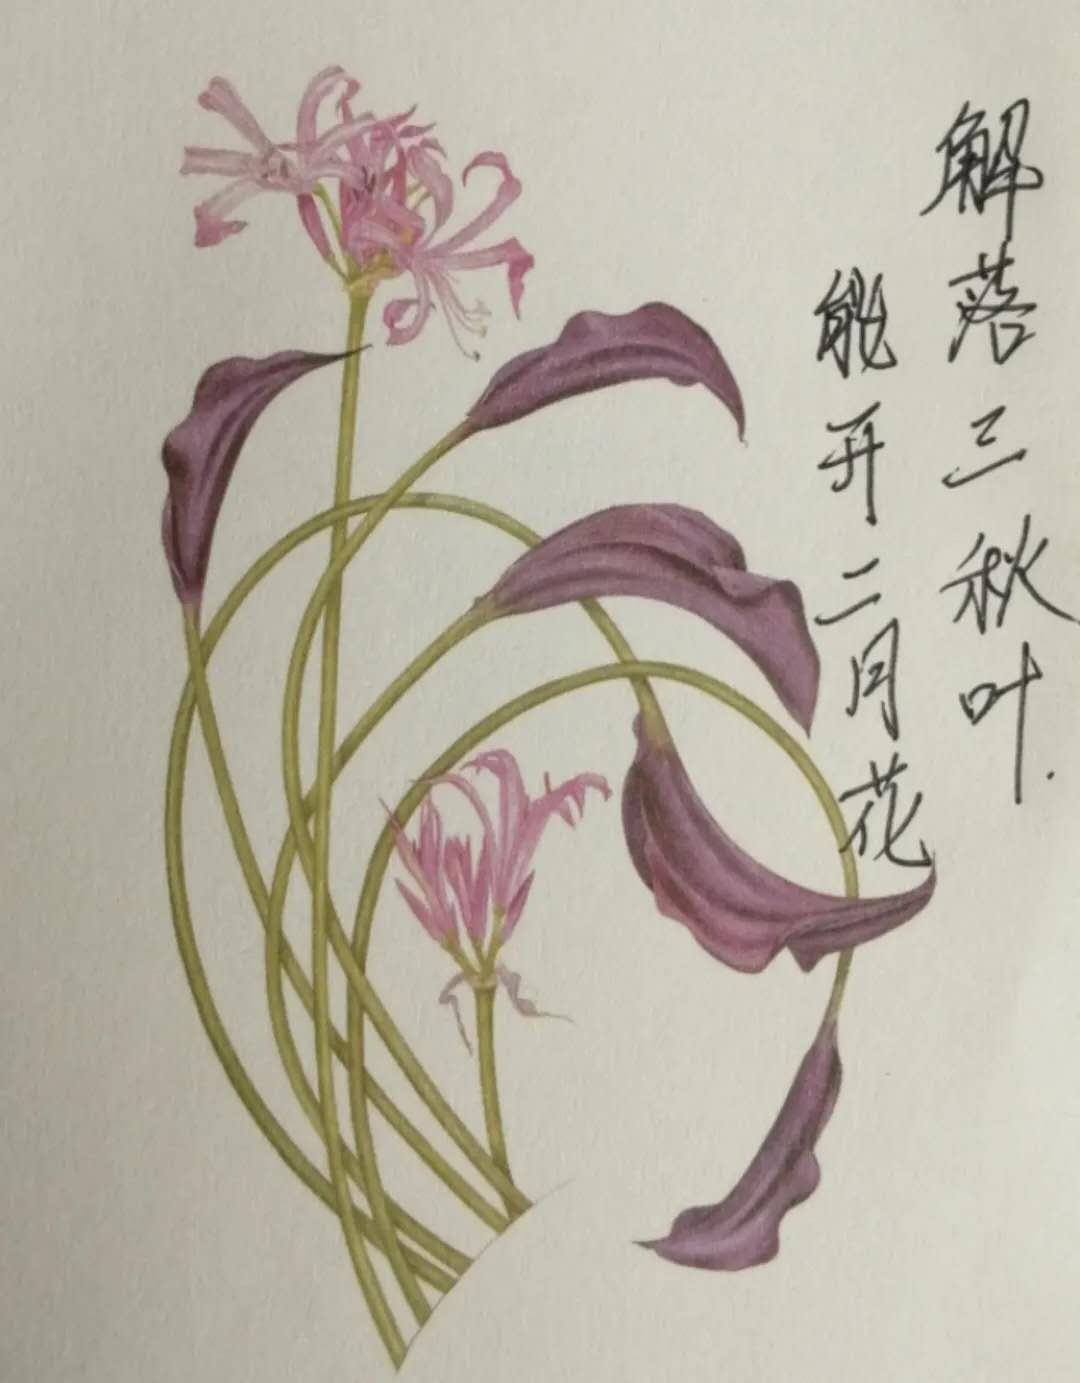 解落三秋叶.
能开二月花